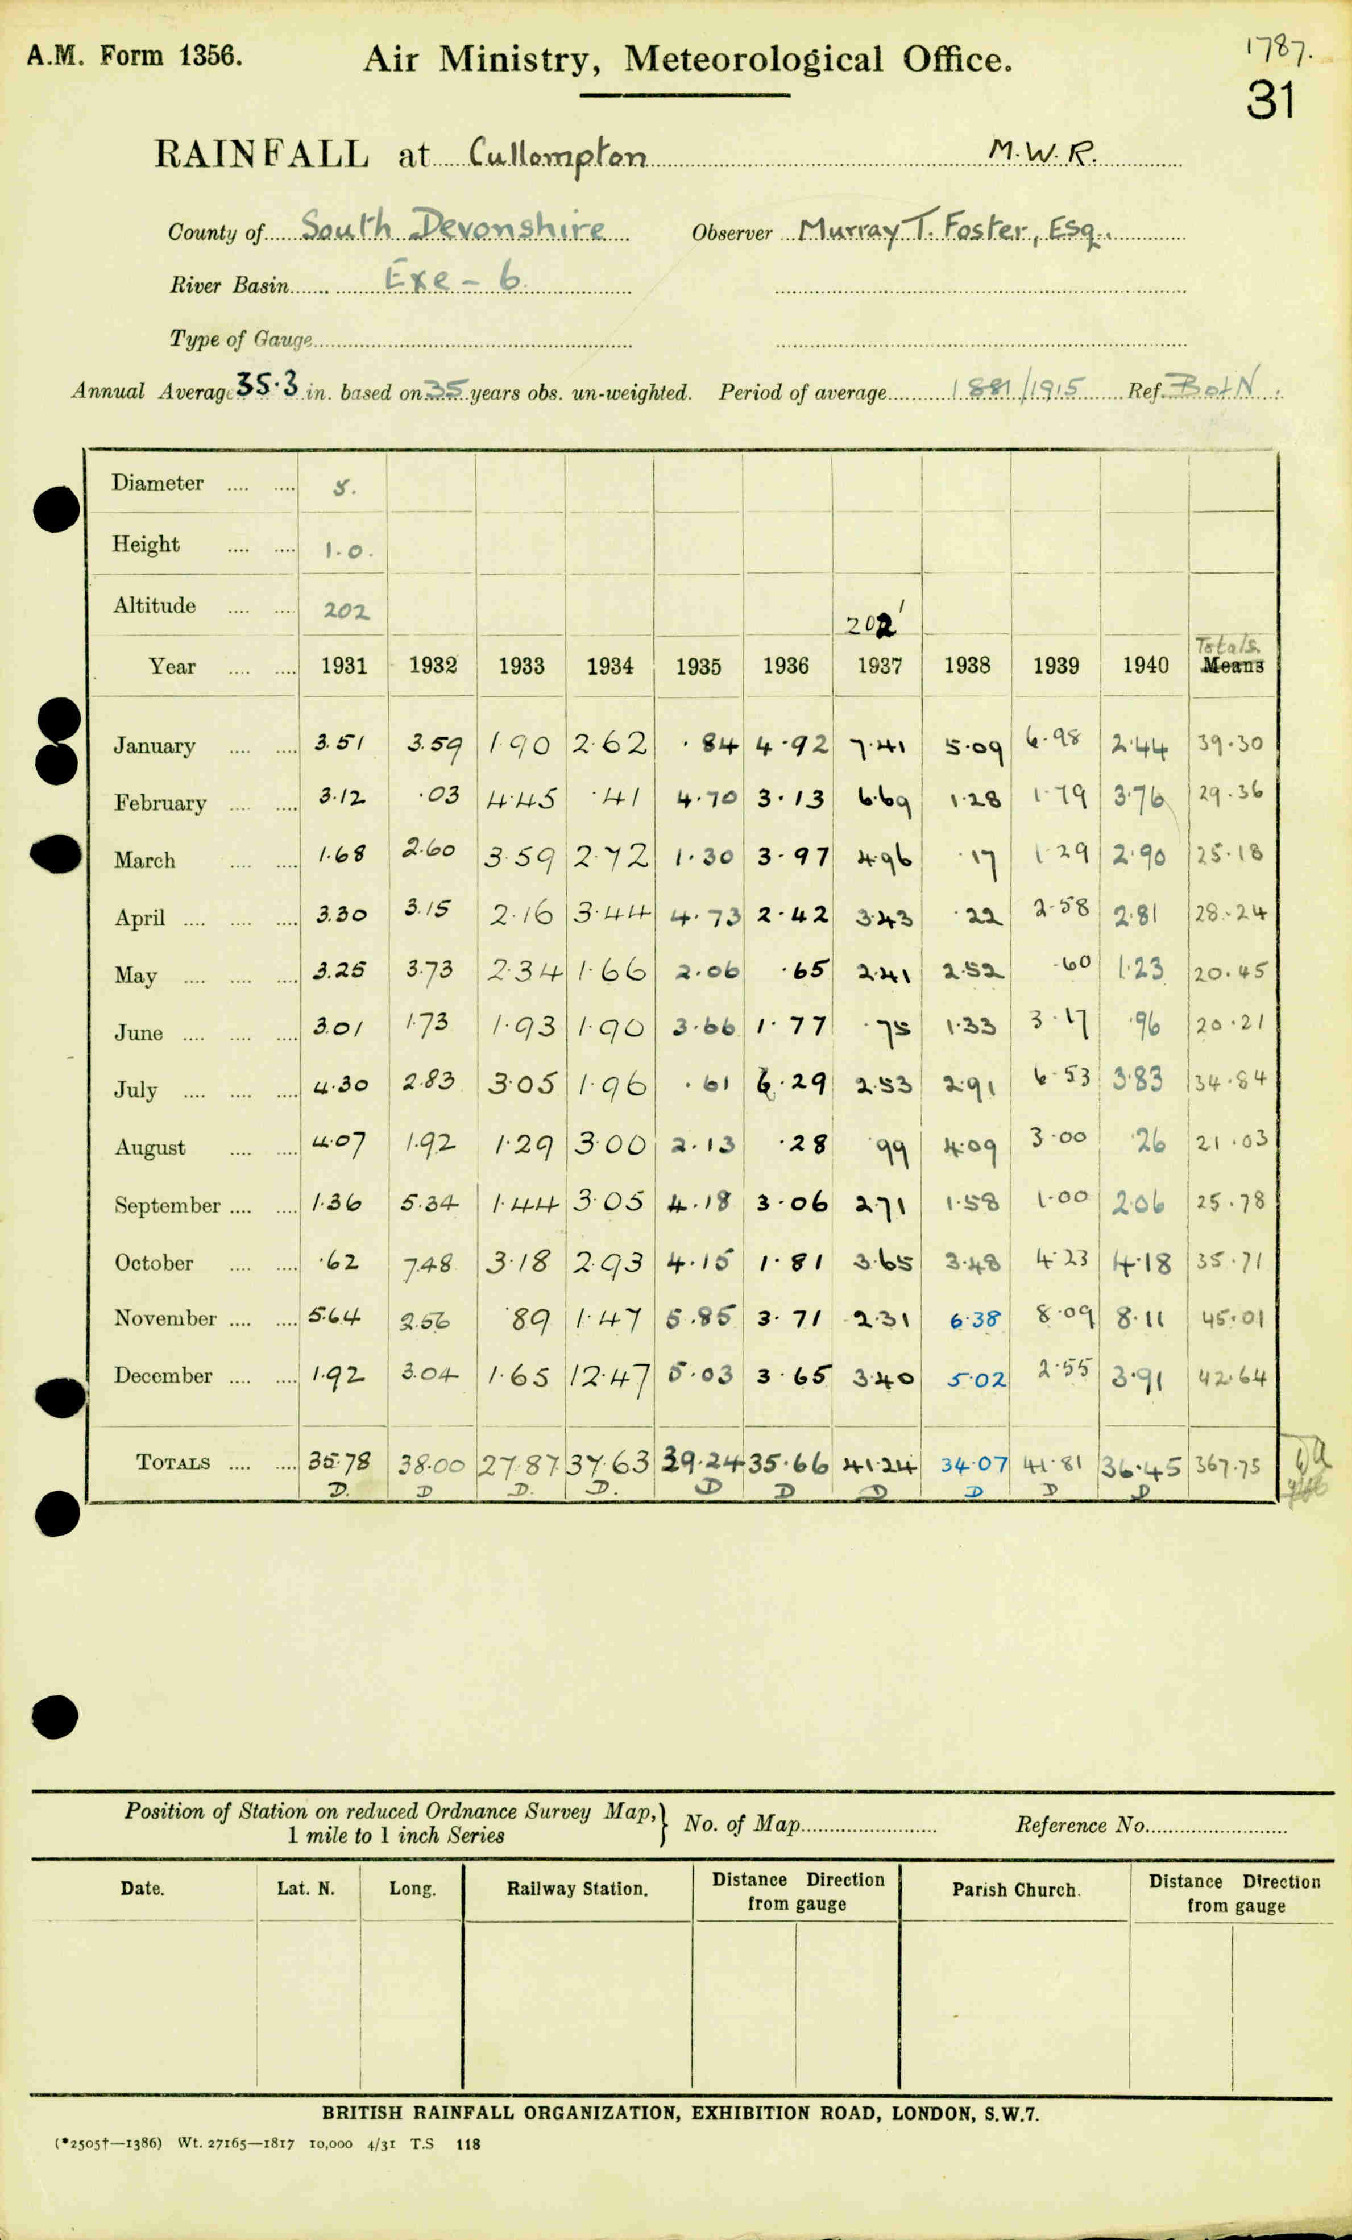 A.M. Form 1356.
Air Ministry, Meteorological Office.
1787.
31
RAINFALL at Cullompton M.W.R.
County of South Devonshire Observer Murray T. Foster, Esq.
River Basin Exe - 6
Type of Gauge
Annual Average 35.3 in. based on 35 years obs. un-weighted. Period of average 1881/1915 Ref.
Diameter 5.
Height 1.0.
Altitude 202 202'
Totals.
Year 1931 1932 1933 1934 1935 1936 1937 1938 1939 1940 Means
January 3.51 3.59 1.90 2.62 .84 4.92 7.41 5.09 6.98 2.44 39.30
February 3.12 .03 4.45 .41 4.70 3.13 6.69 1.28 1.79 3.76 29.36
March 1.68 2.60 3.59 2.72 1.30 3.97 4.96 .17 1.29 2.90 25.18
April 3.30 3.15 2.16 3.44 4.73 2.42 3.43 .22 2.58 2.81 28.24
May 3.25 3.73 2.34 1.66 2.06 .65 2.41 2.52 .60 1.23 20.45
June 3.01 1.73 1.93 1.90 3.66 1.77 .75 1.33 3.17 .96 20.21
July 4.30 2.83 3.05 1.96 .61 6.29 2.53 2.91 6.53 3.83 34.84
August 4.07 1.92 1.29 3.00 2.13 .28 .99 4.09 3.00 .26 21.03
September 1.36 5.34 1.44 3.05 4.18 3.06 2.71 1.58 1.00 2.06 25.78
October .62 7.48 3.18 2.93 4.15 1.81 3.65 3.48 4.23 4.18 35.71
November 5.64 2.56 .89 1.47 5.85 3.71 2.31 6.38 8.09 8.11 45.01
December 1.92 3.04 1.65 12.47 5.03 3.65 3.40 5.02 2.55 3.91 42.64
TOTALS 35.78 38.00 27.87 37.63 39.24 35.66 41.24 34.07 41.81 36.45 367.75
D. D D. D. D D D D D D
Position of Station on reduced Ordnance Survey Map,
1 mile to 1 inch Series
No. of Map Reference No.
Date. Lat. N. Long. Railway Station. Distance Direction from gauge Parish Church. Distance Direction from gauge
BRITISH RAINFALL ORGANIZATION, EXHIBITION ROAD, LONDON, S.W.7.
(*2505†—1386) Wt. 27165—1817 10,000 4/31 T.S 118